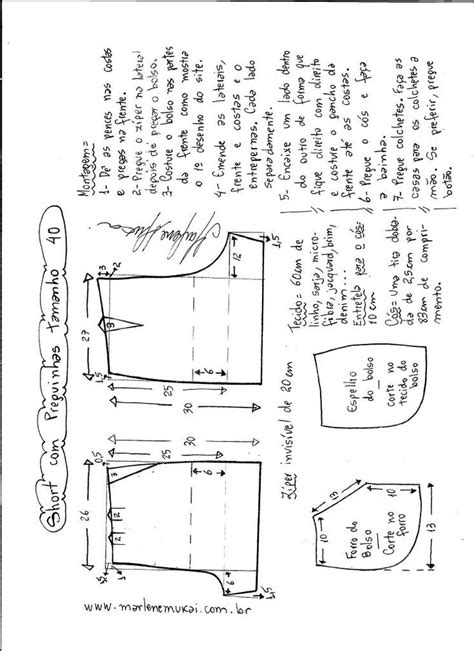 Short com Preguinhas tamanho 40
26
0,5
3
2
2
1,5
1
6
6
1,5
25
30
27
1,5
3
2
3
25
30
6
12
1,5
www.marlenemukai.com.br
Montagem=
1- Dê as pences nas costas
e pregas na frente.
2- Pregue o ziper na lateral
depois de pregar o bolso.
3- Costure o bolso nas partes
da frente como mostra
o 1º desenho do site.
4- Emende as laterais,
frente e costas e o
entrepernas. Cada lado
separadamente.
5- Encaixe um lado dentro
do outro de forma que
fique direito com direito
e costure o gancho da
frente até as costas.
6- Pregue o cós e faça
a bainha.
7- Pregue colchetes. Faça as
casas para os colchetes a
mão. Se preferir, pregue
botão.
Ziper invisível de 20 cm
Tecido= 60cm de
linho, sarja, micro-
fibra, jacquard, brim,
denim...
Entretela para o cós=
10 cm
Cós= Uma tira dobra-
da de 2,5cm por
83cm de compri-
mento.
Forro do
Bolso
Corte no
forro
10
13
10
13
Espelho
do bolso
Corte no
tecido do
bolso